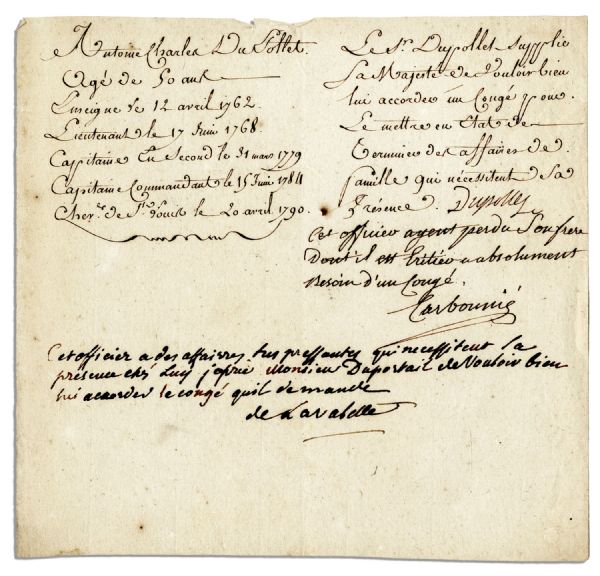 Antoine Charles Du Pollet.
Agé de 50 ans
Enseigne le 12 avril 1762.
Lieutenant le 17 Juin 1768.
Capitaine En Second le 31 mars 1779
Capitaine Commandant le 15 Juin 1784
Cher. de St. Louis le 20 avril 1790.
Le Sr. Dupollet Supplie
Sa Majesté de Vouloir bien
lui accorder un Congé pour
Le mettre en Etat de
Terminer des affaires de
famille qui nécessitent Sa
Présence. Dupollet
Cet officier ayent perdu Son frere
Dont il est Eritier a absolument
Besoin d'un Congé.
Carbonnié
Cet officier a des affaires tres pressantes qui necessitent Sa
présence chés Luy j'oprie Monsieur Duportail de Vouloir bien
lui accorder le congé quil demande
de